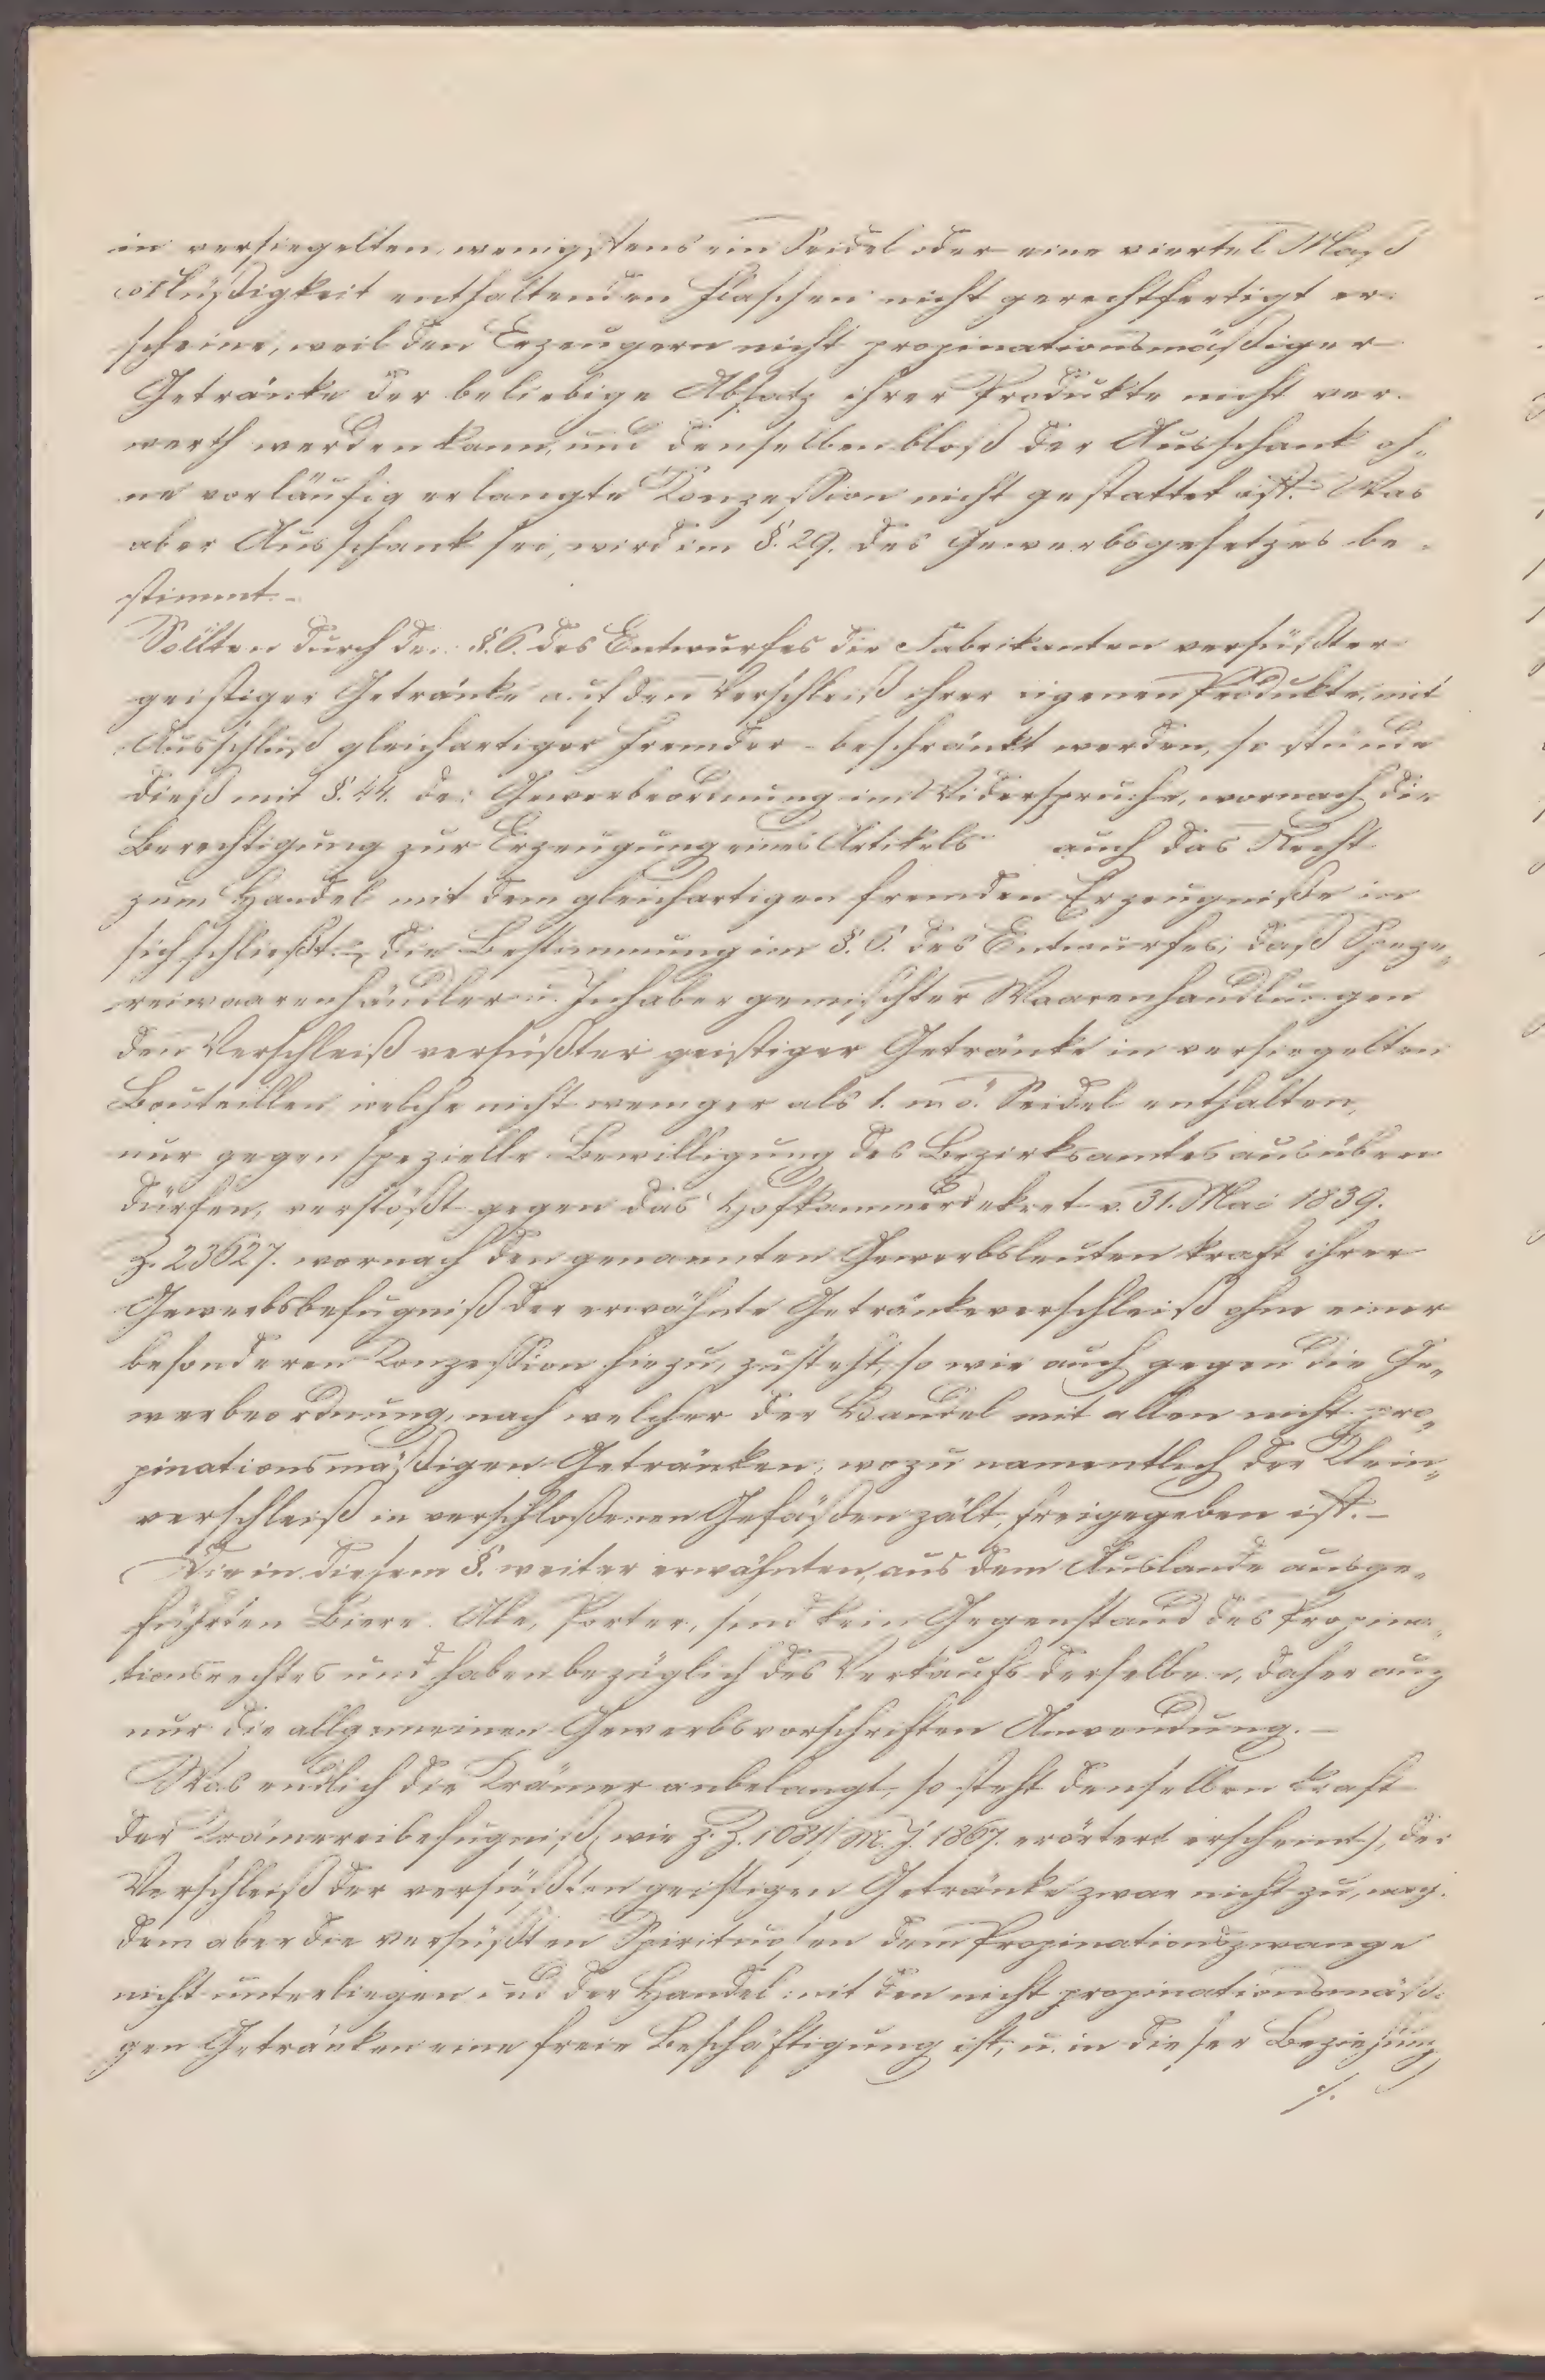 in versiegelten, wenigstens ein Seidel oder eine viertel Mass
Flüßigkeit enthaltenden Flaschen nicht gerechtfertigt er-
scheine, weil den Erzeugern nicht propinationsmäßiger
Getränke der beliebige Absatz ihrer Produkte nicht ver-
werth werden kann, und denselben bloß der Ausschank oh„
ne vorläufig erlangte Konzession nicht gestattet ist. Was
aber Ausschank sei, wird im §. 29. des Gewerbsgesetzes be-
stimmt.-
Sollten durch den §. 6. des Entwurfes die Fabrikanten versüßter
geistiger Getränke auf den Verschleiß ihrer eigenen Produkte, mit
Ausschluß gleichartiger fremder - beschränkt werden, so stünde
dieß mit §. 44. der Gewerbeordnung im Widerspruche, wornach die
Berechtigung zur Erzeugung eines Artikels auch das Recht
zum Handel mit dem gleichartigen fremden Erzeugniße in
sich schließt.- Die Bestimmung im §. 6. des Entwurfes, daß Speze„
reiwaarenhändler u. Inhaber gemischter Waarenhandlungen
den Verschleiß versüßter geistiger Getränke in versiegelten
Bouteillen, welche nicht weniger als 1. n. ö. Seidel enthalten,
nur gegen spezielle Bewilligung des Bezirksamtes ausüben
dürfen, verstößt gegen das Hofkammerdekret v. 31. Mai 1839.
Z. 23627. wornach den genannten Gewerbsleuten kraft ihrer
Gewerbsbefugniß der erwähnte Getränkeverschleiß ohne einer
besonderen Konzession hiezu, zusteht, so wie auch gegen die Ge„
werbeordnung, nach welcher der Handel mit allen nicht pro„
pinationsmäßigen Getränken, wozu namentlich der Klein„
verschleiß in verschloßenen Gefäßen zält, freigegeben ist.-
Die in diesem §. weiter erwähnten, aus dem Auslande ausge„
führten Biere. Ale, Porter, sind kein Gegenstand des Propina„
tionsrechtes und haben bezüglich des Verkaufs derselben, daher auch
nur die allgemeinen Gewerbsvorschriften Anwendung.-
Was endlich die Krämer anbelangt, so steht denselben kraft
der Krämereibefugniß, wie z. Z. 1081/M. J. 1867. erörtert erscheint), der
Verschleiß der versüßten geistigen Getränke zwar nicht zu, nach-
dem aber die versüßten Spirituosen dem Propinationszwange
nicht unterliegen und der Handel mit den nicht propinationsmäßi
gen Getränken eine freie Beschäftigung ist, u. in dieser Beziehung
./.